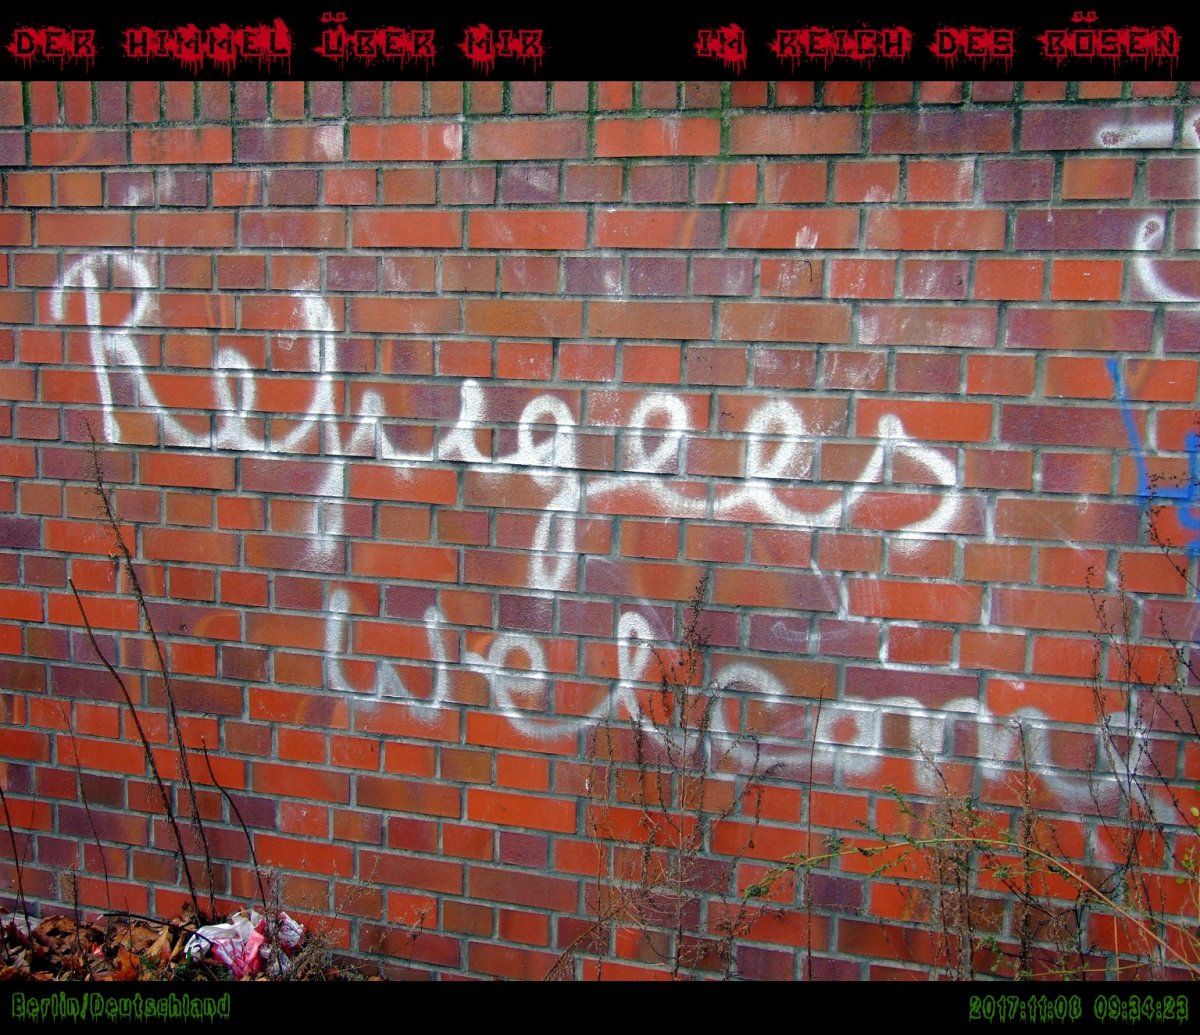 DER HIMMEL ÜBER MIR IM REICH DES BÖSEN
Refugees
Welcome
Berlin/Deutschland 2017:11:08 09:34:23